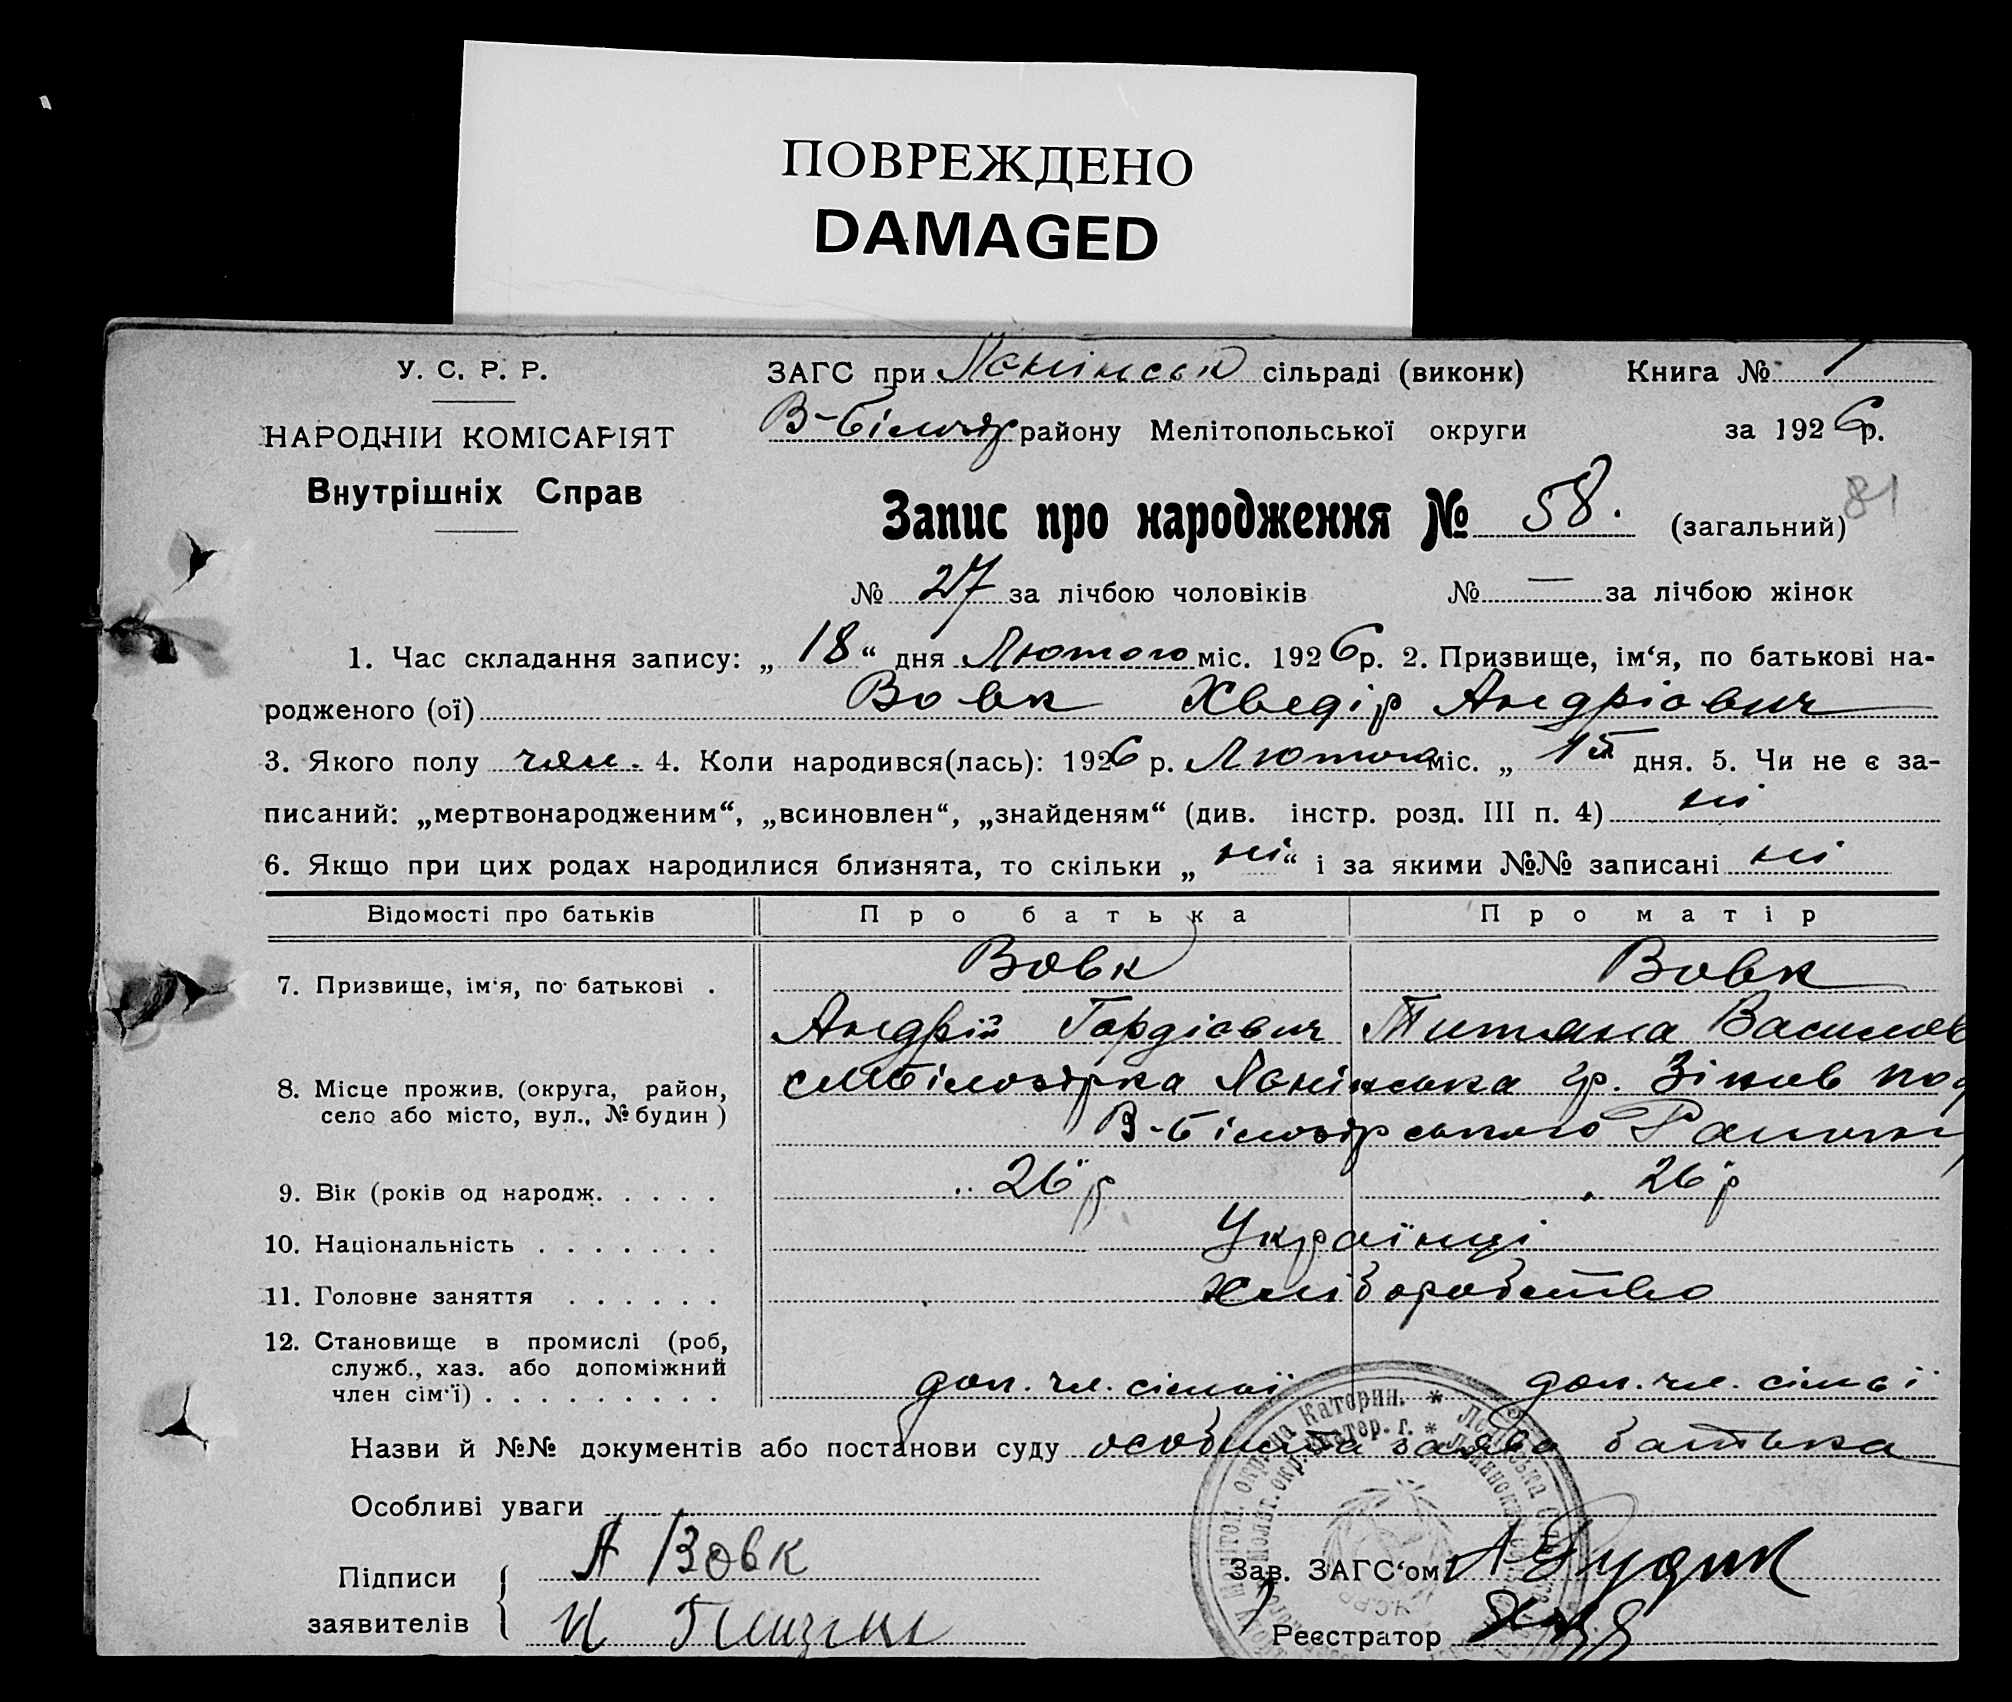 ПОВРЕЖДЕНО
DAMAGED
У. С. Р. Р.
НАРОДНІЙ КОМІСАРІЯТ
Внутрішніх Справ
ЗАГС при Ленінськ сільраді (виконк) Книга № 1
В-Білозір району Мелітопольської округи за 1926 р.
Запис про народження № 58. (загальний) 81
№ 27 за лічбою чоловіків № — за лічбою жінок
1. Час складання запису: „18“ дня Лютого міс. 1926 р. 2. Призвище, ім‘я, по батькові на-
родженого (ої) Вовк Хведір Андрієвич
3. Якого полу чол. 4. Коли народився(лась): 1926 р. Лютого міс. „ дня. 5. Чи не є за-
писаний: „мертвонародженим“, „всиновлен“, „знайденям“ (див. інстр. розд. III п. 4) ні
6. Якщо при цих родах народилися близнята, то скільки „ні“ і за якими №№ записані ні
Відомості про батьків Про батька Про матір
7. Призвище, ім‘я, по батькові . Вовк Вовк
Андрій Гордієвич Титяна Васильов
8. Місце прожив. (округа, район, Білозірка Ленінська
село або місто, вул., № будин ) В-Білозірського
9. Вік (років од народж. . . . . 26 р 26 р
10. Національність . . . . . . . Українці
11. Головне заняття . . . . . . хліборобство
12. Становище в промислі (роб,
служб., хаз. або допоміжний
член сім‘ї) . . . . . . . . . доп. чл. сімьї доп. чл. сімьї
Назви й №№ документів або постанови суду особиста заява батька
Особливі уваги
Підписи А Вовк Зав. ЗАГС‘ом А Рудик
заявителів И Реєстратор